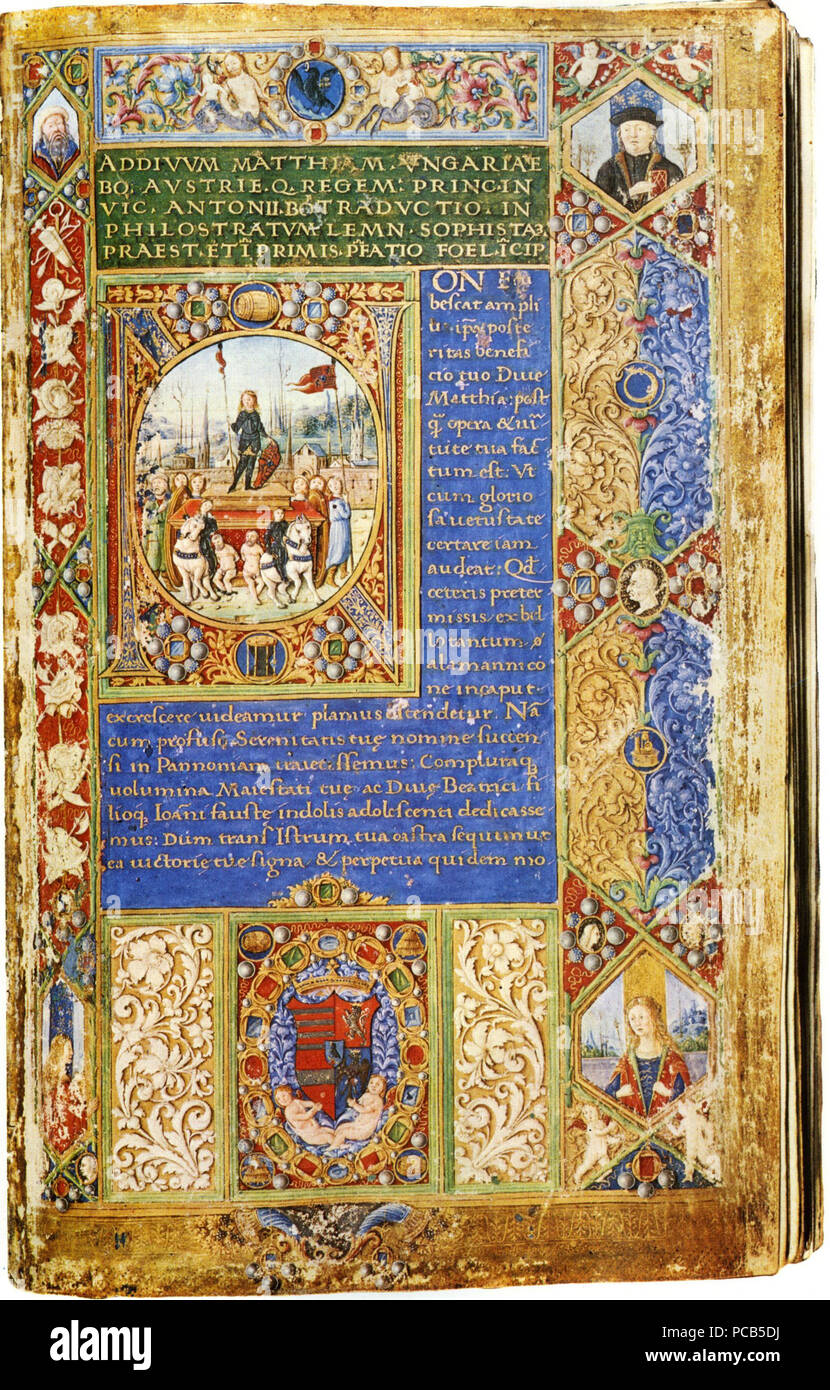 ADDIVVM MATTHIAM VNGARIAE
BO AVSTRIE Q REGEM PRINC IN
VIC ANTONII BO TRADVCTIO IN
PHILOSTRATVM LEMN SOPHISTA
PRAEST ETI PRIMIS PFATIO FOELICIP
N
ON E
bescat ampli
poste
ritas benefi
cio tuo Diue
Matthia: post
q̃ opera & uir
tute tua fac
tum est: Vt
cum glorio
sa uetustate
certare iam
audeat: Qd
ceteris preter
missis ex bel
lo tantum
alamannico
ne in caput
excrescere uideamur planius ostendetur. Nã
cum profuso Serenitatis tuę nomine succen
si in Pannoniam Compluraq
uolumina Maiestati tue ac Diuę Beatrici fi
lioq Ioãni fauste indolis adolescenti dedicasse
mus: Dum trans Istrum tua castra sequimur
ea uictorie tue signa & perpetua quidem mo
alamy
alamy
a
alamy
Image ID: PCB5DJ
www.alamy.com